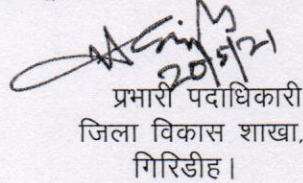 20/5/21
प्रभारी पदाधिकारी
जिला विकास शाखा,
गिरिडीह।